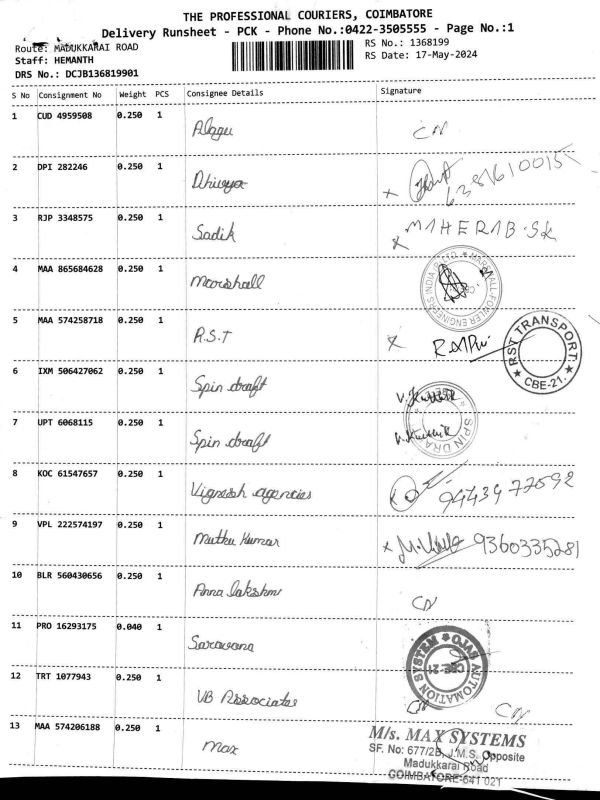 THE PROFESSIONAL COURIERS, COIMBATORE
Delivery Runsheet - PCK - Phone No.:0422-3505555 - Page No.:1
Route: MADUKKARAI ROAD
RS No.: 1368199
Staff: HEMANTH
RS Date: 17-May-2024
DRS No.: DCJB136819901
S No Consignment No Weight PCS Consignee Details Signature
1 CUD 4959508 0.250 1 Alagu CN
2 DPI 282246 0.250 1 Dhivya x 6381610015
3 RJP 3348575 0.250 1 Sadik x MAHERAB.SK
4 MAA 865684628 0.250 1 Marshall
MARSHALL-FOWLER ENGINEERS INDIA (P) LTD.
5 MAA 574258718 0.250 1 R.S.T x
RST TRANSPORT
CBE-21.
6 IXM 506427062 0.250 1 Spin draft V. Karthik
7 UPT 6068115 0.250 1 Spin draft V. Karthik
SPIN DRA
8 KOC 61547657 0.250 1 Vignesh agencies x 9443977592
9 VPL 222574197 0.250 1 Muthu Kumar x 9360335281
10 BLR 560430656 0.250 1 Anna lakshmi CN
11 PRO 16293175 0.040 1 Saravana
OJAS AUTOMATION SYSTEM
CBE-21
12 TRT 1077943 0.250 1 VB Associates CN CN
13 MAA 574206188 0.250 1 Max
M/s. MAX SYSTEMS
SF. No: 677/2B, J.M.S. Opposite
Madukkarai Road
COIMBATORE-641 021